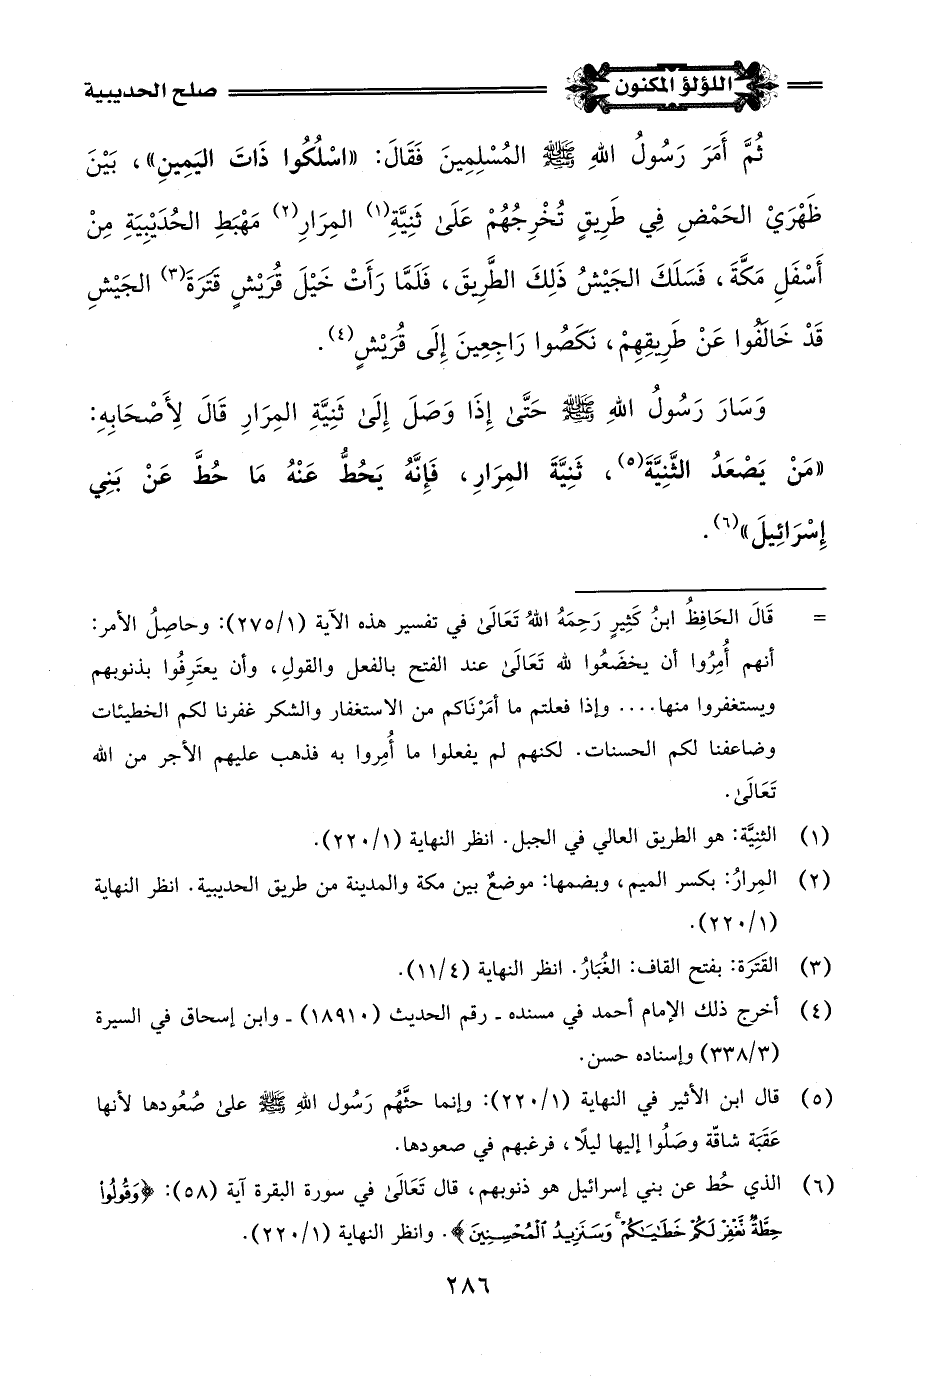 اللؤلؤ المكنون
صلح الحديبية
ثُمَّ أَمَرَ رَسُولُ اللهِ ﷺ المُسْلِمِينَ فَقَالَ: «اسْلُكُوا ذَاتَ اليَمِينِ»، بَيْنَ
ظَهْرَيْ الحَمْضِ فِي طَرِيقٍ تُخْرِجُهُمْ عَلَىٰ ثَنِيَّةِ(١) المِرَارِ(٢) مَهْبَطِ الحُدَيْبِيَةِ مِنْ
أَسْفَلِ مَكَّةَ، فَسَلَكَ الجَيْشُ ذَلِكَ الطَّرِيقَ، فَلَمَّا رَأَتْ خَيْلُ قُرَيْشٍ قَتَرَةَ(٣) الجَيْشِ
قَدْ خَالَفُوا عَنْ طَرِيقِهِمْ، نَكَصُوا رَاجِعِينَ إِلَى قُرَيْشٍ(٤).
وَسَارَ رَسُولُ اللهِ ﷺ حَتَّىٰ إِذَا وَصَلَ إِلَىٰ ثَنِيَّةِ المِرَارِ قَالَ لِأَصْحَابِهِ:
«مَنْ يَصْعَدُ الثَّنِيَّةَ(٥)، ثَنِيَّةَ المِرَارِ، فَإِنَّهُ يَحُطُّ عَنْهُ مَا حُطَّ عَنْ بَنِي
إِسْرَائِيلَ»(٦).
= قَالَ الحَافِظُ ابنُ كَثِيرٍ رَحِمَهُ اللهُ تَعَالَىٰ في تفسير هذه الآية (٢٧٥/١): وحاصِلُ الأمر:
أنهم أُمِرُوا أن يخضَعُوا لله تَعَالَىٰ عند الفتح بالفعل والقولِ، وأن يعتَرِفُوا بذنوبهم
ويستغفروا منها.... وإذا فعلتم ما أمَرْنَاكم من الاستغفار والشكر غفرنا لكم الخطيئات
وضاعفنا لكم الحسنات. لكنهم لم يفعلوا ما أُمِروا به فذهب عليهم الأجر من الله
تَعَالَىٰ.
(١) الثنِيَّة: هو الطريق العالي في الجبل. انظر النهاية (٢٢٠/١).
(٢) المِرارُ: بكسر الميم، وبضمها: موضعٌ بين مكة والمدينة من طريق الحديبية. انظر النهاية
(٢٢٠/١).
(٣) القَتَرَة: بفتح القاف: الغُبَارُ. انظر النهاية (١١/٤).
(٤) أخرج ذلك الإمام أحمد في مسنده ـ رقم الحديث (١٨٩١٠) ـ وابن إسحاق في السيرة
(٣٣٨/٣) وإسناده حسن.
(٥) قال ابن الأثير في النهاية (٢٢٠/١): وإنما حثَّهُم رَسُول اللهِ ﷺ علىٰ صُعُودها لأنها
عَقَبَة شاقّة وصَلُوا إليها ليلًا، فرغبهم في صعودها.
(٦) الذي حُط عن بني إسرائيل هو ذنوبهم، قال تَعَالَىٰ في سورة البقرة آية (٥٨): ﴿وَقُولُوا۟
حِطَّةٌ نَّغْفِرْ لَكُمْ خَطَـٰيَـٰكُمْ ۚ وَسَنَزِيدُ ٱلْمُحْسِنِينَ﴾. وانظر النهاية (٢٢٠/١).
٢٨٦